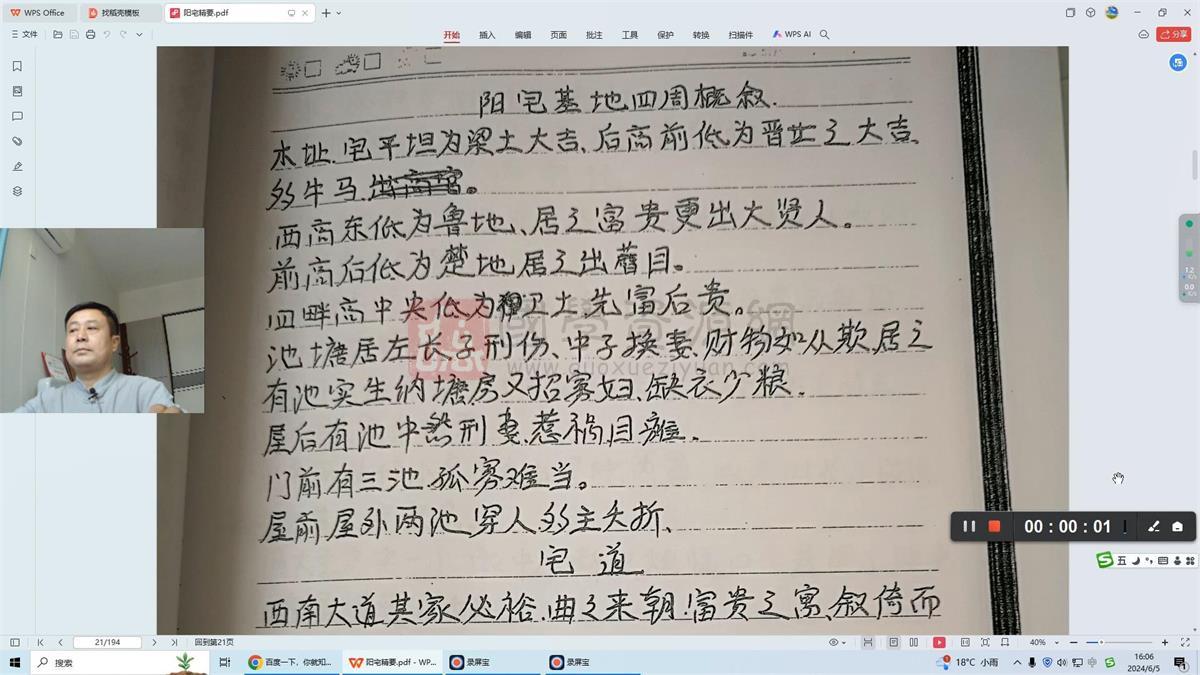 WPS Office 找稻壳模板 阳宅精要.pdf
文件 开始 插入 编辑 页面 批注 工具 保护 转换 扫描件 WPS AI 分享
阳宅基地四周概叙.
木址.宅平坦为梁土大吉、后高前低为晋世之大吉、
多牛马.
西高东低为鲁地、居之富贵更出大贤人。
前高后低为楚地居之出瞽目。
四畔高中央低为卫土.先富后贵。
國學資源網
池塘居左长子刑伤、中子换妻.财物如从欺.居之
guoxueziyuan.com
有池实生纳塘房又招寡妇、缺衣少粮.
屋后有池中煞刑妻.惹祸目瘫.
门前有三池孤寡难当。
屋前屋外两池穿人多主夭折、
宅道
西南大道其家必裕.曲之来朝!富贵之寓.叙倚而
00:00:01
1.2
0.0
五
21/194 回到第21页 40%
搜索 百度一下，你就知... 阳宅精要.pdf - WP... 录屏宝 录屏宝 18°C 小雨 中 16:06
2024/6/5